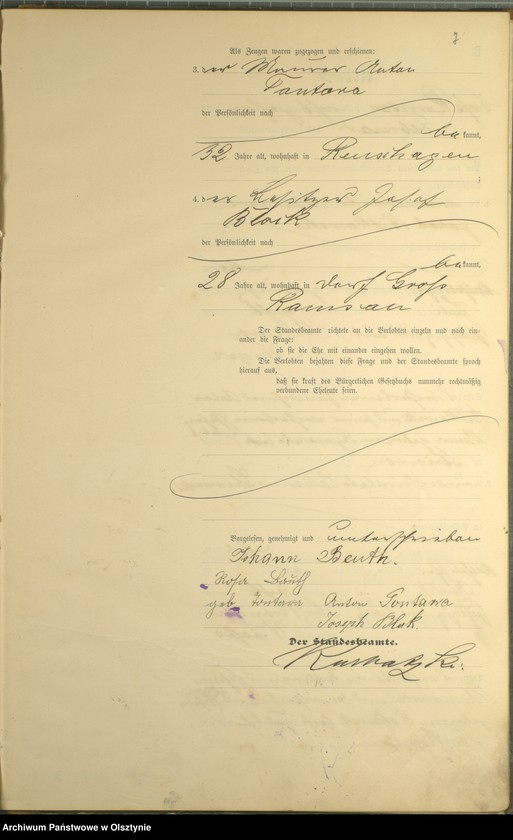 7
Als Zeugen waren zugezogen und erschienen:
3. der Maurer Anton
Tantara
der Persönlichkeit nach
bekannt,
32 Jahre alt, wohnhaft in Reuschhagen
4. der Besitzer Josef
Block
der Persönlichkeit nach
bekannt,
28 Jahre alt, wohnhaft in Dorf Groß
Ramsau
Der Standesbeamte richtete an die Verlobten einzeln und nach ein-
ander die Frage:
ob sie die Ehe mit einander eingehen wollen.
Die Verlobten bejahten diese Frage und der Standesbeamte sprach
hierauf aus,
daß sie kraft des Bürgerlichen Gesetzbuchs nunmehr rechtmäßig
verbundene Eheleute seien.
Vorgelesen, genehmigt und unterschrieben
Johann Beuth.
Rosa Bauth
geb. Tontara Anton Tontara
Joseph Blok.
Der Standesbeamte.
Archiwum Państwowe w Olsztynie